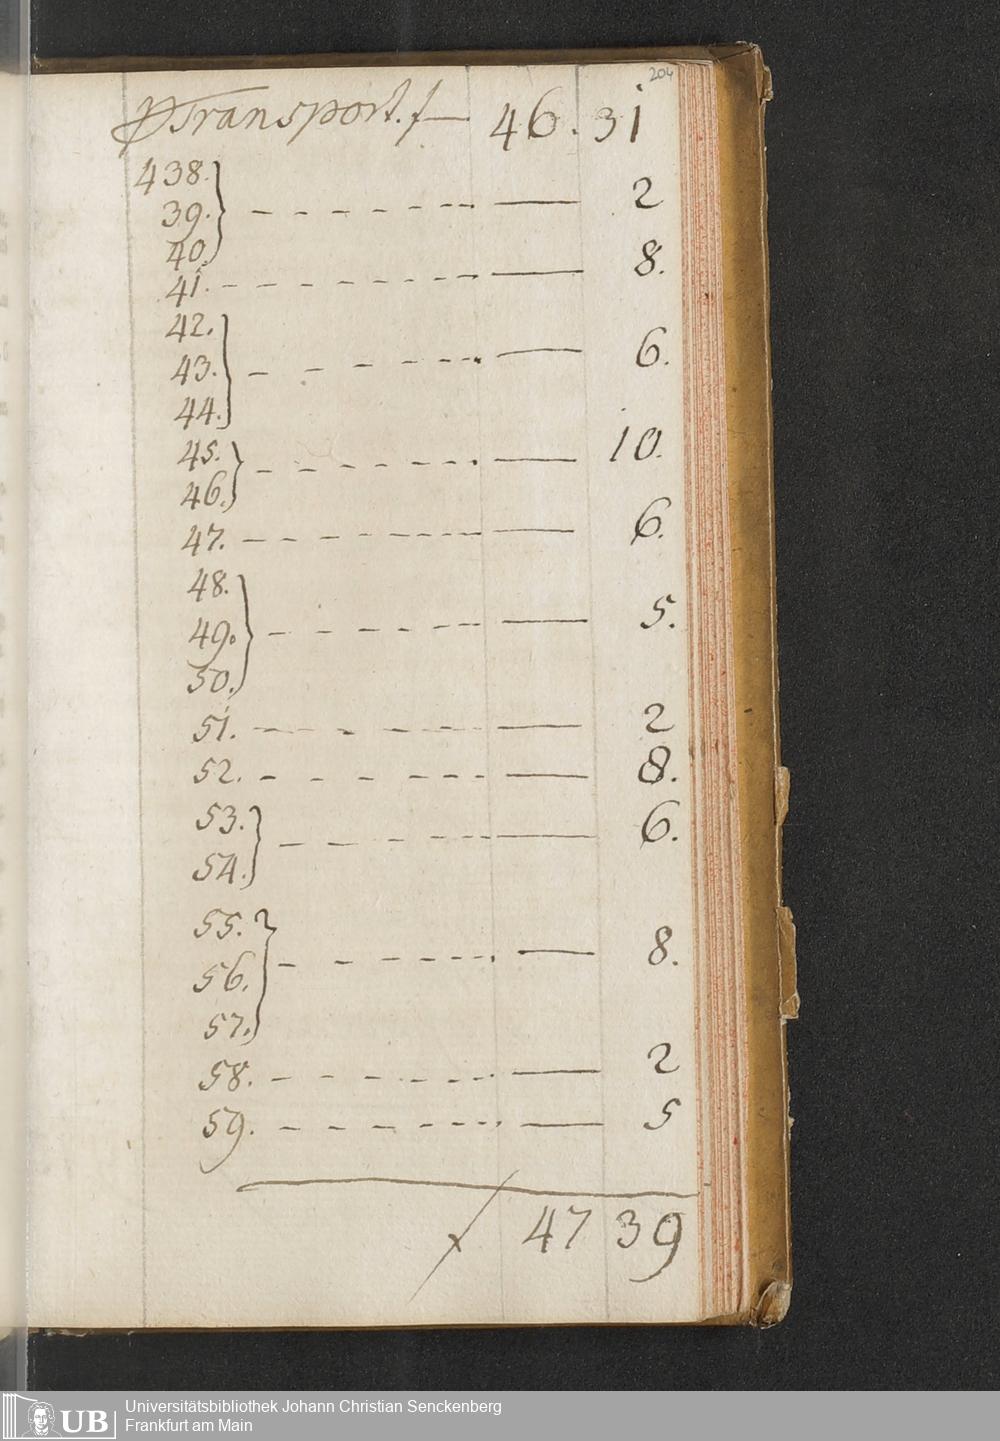 204
Transport. f 46. 31
438.
39. 2
40.
41. 8.
42.
43. 6.
44.
45. 10.
46.
47. 6.
48.
49. 5.
50.
51. 2
52. 8.
53. 6.
54.
55.
56. 8.
57.
58. 2
59. 5
f 47 39
UB
Universitätsbibliothek Johann Christian Senckenberg
Frankfurt am Main